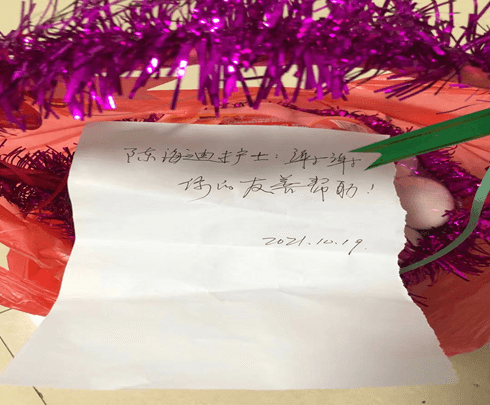 陈海迪护士：谢谢
你的友善帮助！
2021.10.19.